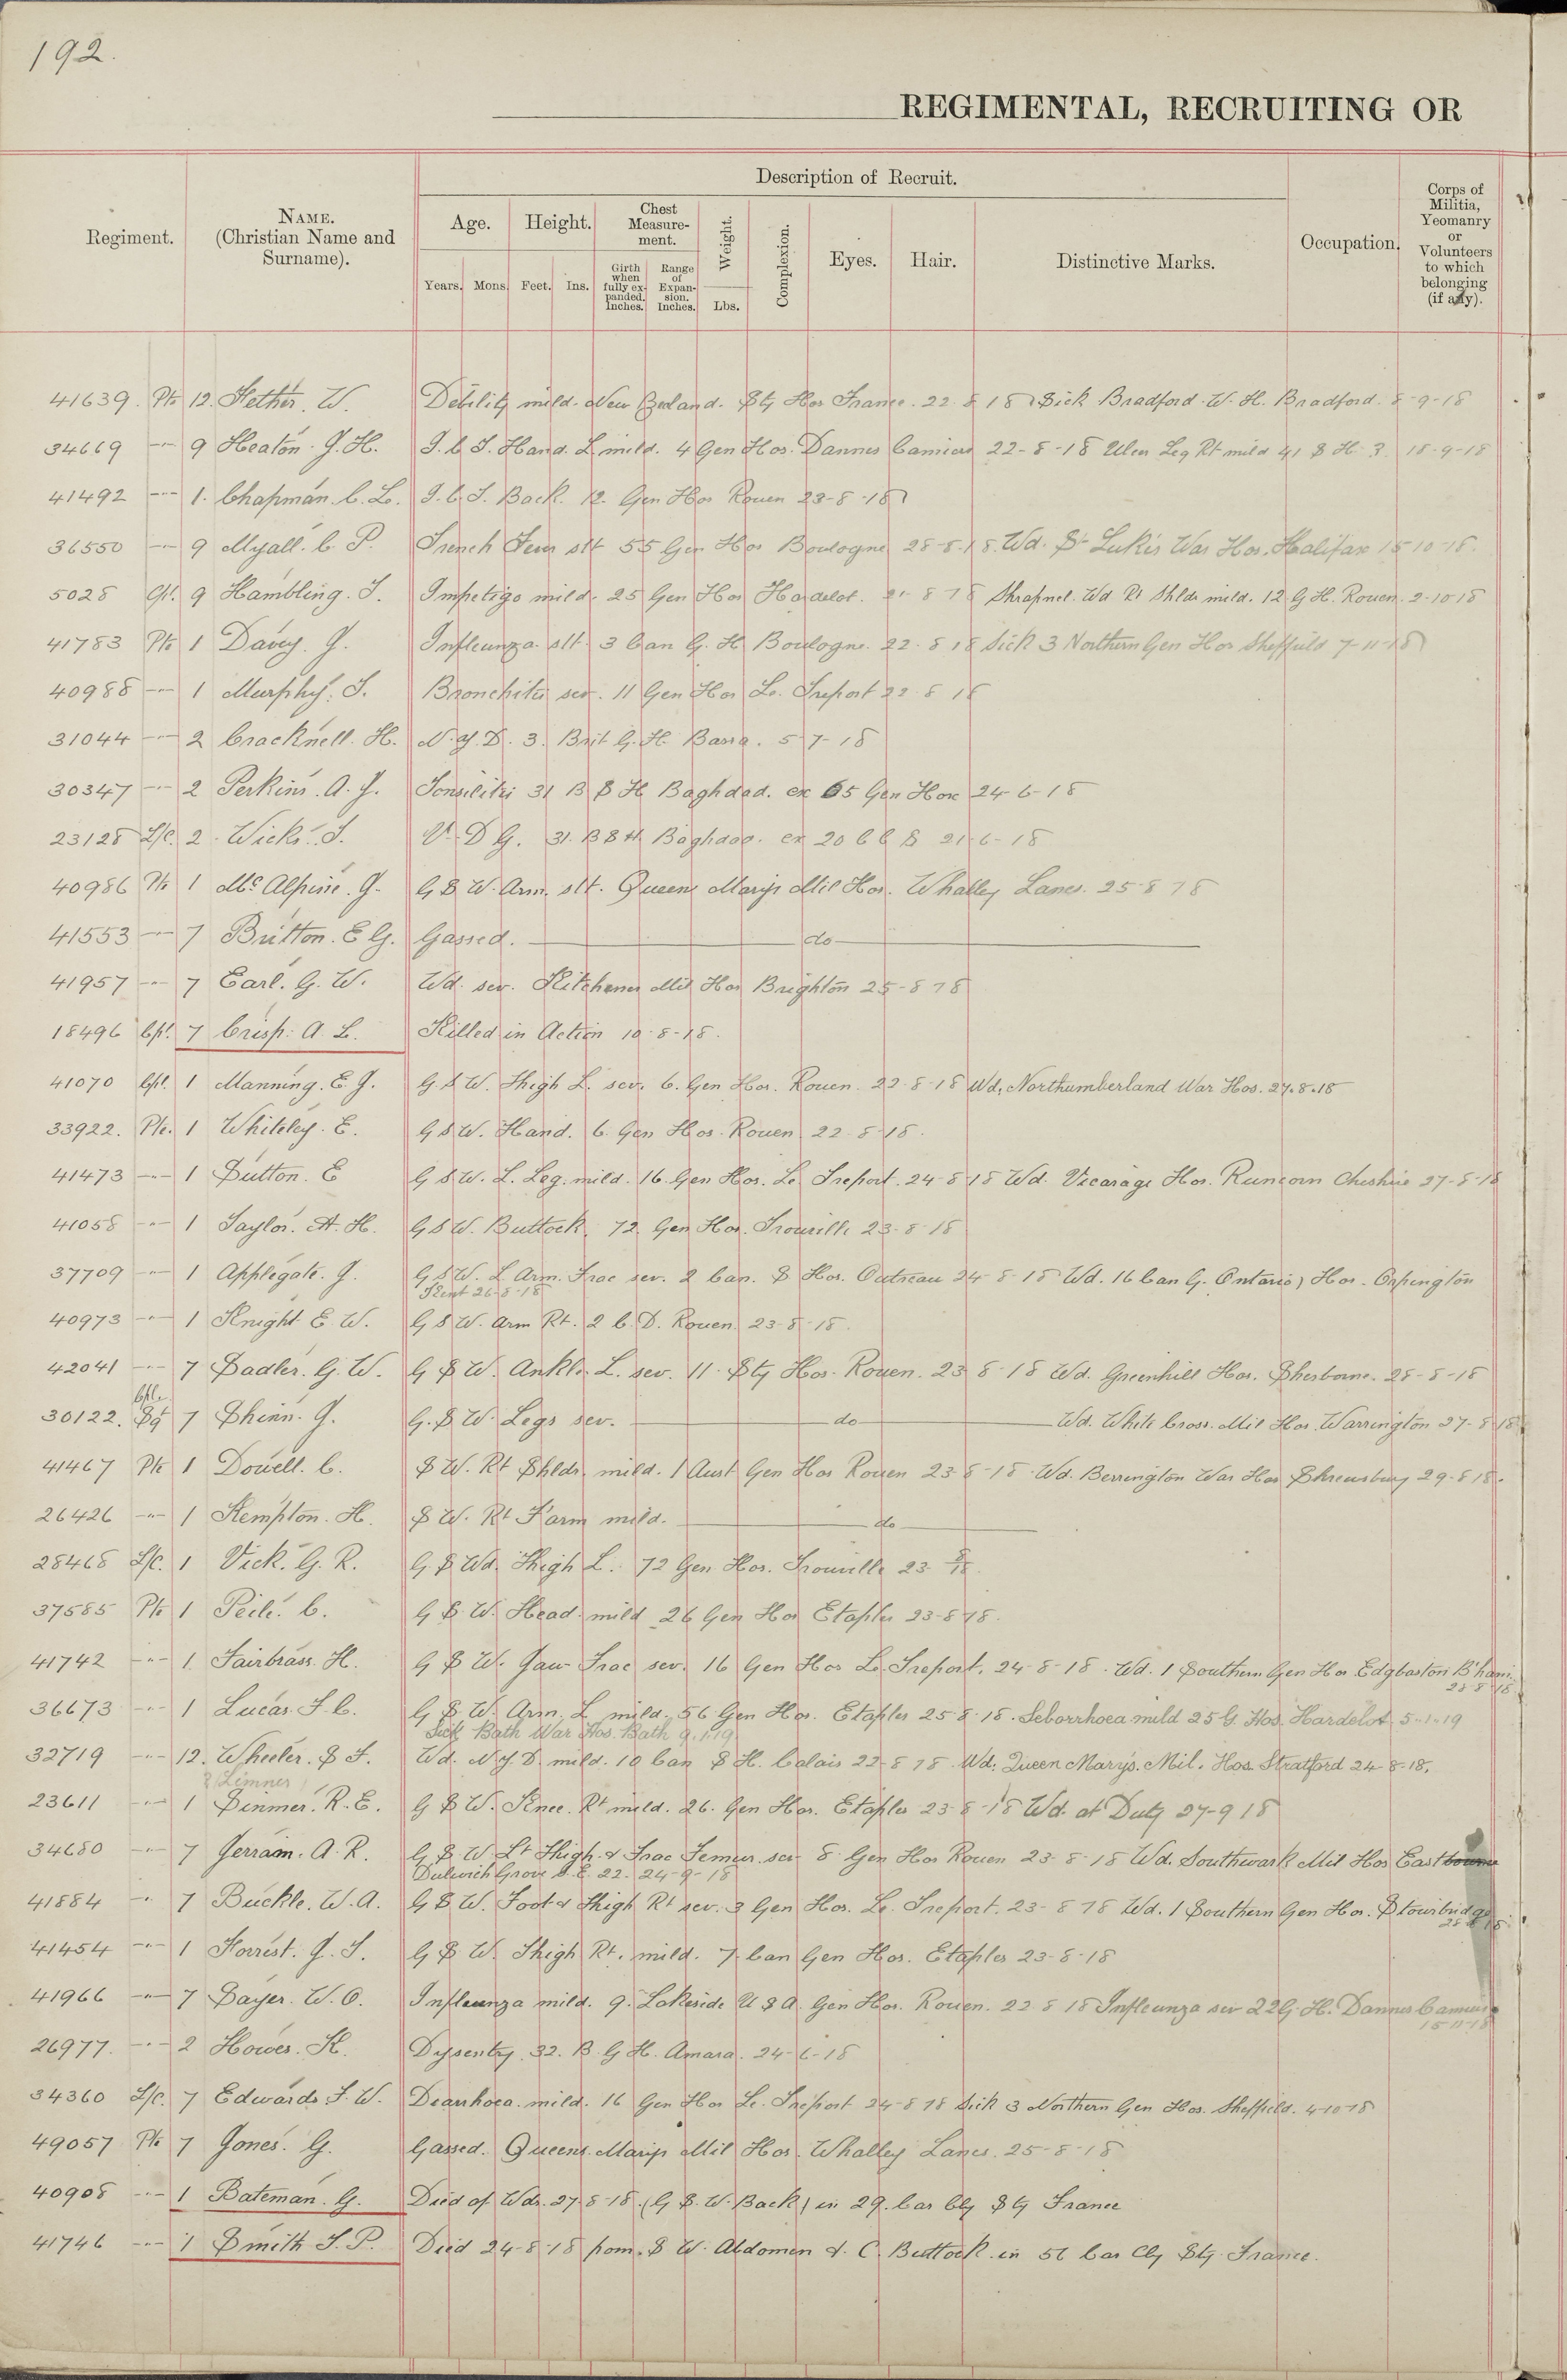 192.
REGIMENTAL, RECRUITING OR
Regiment.
NAME.
(Christian Name and
Surname).
Description of Recruit.
Age.
Height.
Chest
Measure-
ment.
Weight.
Complexion.
Eyes.
Hair.
Distinctive Marks.
Occupation.
Corps of
Militia,
Yeomanry
or
Volunteers
to which
belonging
(if any).
Years.
Mons.
Feet.
Ins.
Girth
when
fully ex-
panded.
Inches.
Range
of
Expan-
sion.
Inches.
Lbs.
41639. Pte 12. Hether. W. Debility mild. New Zealand. Sty Hos France. 22. 8 18 Sick Bradford. W. H. Bradford. 8-9-18
34669 -"- 9 Heaton. J. H. I. C. T. Hand. L mild. 4 Gen Hos. Dannes Camiers 22-8-18 Ulcer Leg Rt mild 41 S H. 3. 18-9-18
41492 -"- 1. Chapman. C. L. I. C. T. Back. 12. Gen Hos Rouen 23-8-18
36550 -"- 9 Myall. C. P. Trench Fever slt 55 Gen Hos Boulogne 28-8-18. Wd. St Luke's War Hos. Halifax 15-10-18.
5028 Cpl. 9 Hambling. T. Impetigo mild. 25 Gen Hos Hardelot. 21 8 18 Shrapnel. Wd Rt Shldr mild. 12 G H. Rouen. 2-10-18
41783 Pte 1 Davey. J. Infleunza slt. 3 Can G. H Boulogne. 22. 8 18 Sick 3 Northern Gen Hos Sheffield 7-11-18
40988 -"- 1 Murphy. T. Bronchitis sev. 11 Gen Hos Le. Treport 22 8 18
31044 -"- 2 Cracknell. H. N. Y. D. 3. Brit G. H. Basra. 5-7-18
30347 -"- 2 Perkins. A. J. Tonsilitis 31 B S H Baghdad. ex 65 Gen Hos 24-6-18
23128 L/C. 2. Wicks. T. V. D G. 31. B S H. Baghdad. ex 20 C C S 21-6-18
40986 Pte 1 McAlpine. J. G S W. Arm. slt. Queens Marys Mil Hos. Whalley Lancs. 25-8 18
41553 -"- 7 Britton. E G. Gassed. do
41957 -"- 7 Earl. G. W. Wd. sev. Kitchener Mil Hos Brighton 25-8 18
18496 Cpl. 7 Crisp. A L. Killed in Action 10-8-18.
41070 Cpl. 1 Manning. E. J. G. S W. Thigh L. sev. 6. Gen Hos. Rouen. 22-8-18 Wd. Northumberland War Hos. 27.8.18
33922. Pte. 1 Whiteley. E. G S W. Hand. 6 Gen Hos. Rouen 22-8-18.
41473 -"- 1 Sutton. E G S W. L. Leg. mild. 16. Gen Hos. Le Treport. 24-8-18 Wd. Vicarage Hos. Runcorn Cheshire 27-8-18
41058 -"- 1 Taylor. A. H. G S W. Buttock. 72. Gen Hos. Trouville 23-8-18
37709 -"- 1 Applegate. J. G S W. L Arm. Frac sev. 2 Can. S Hos. Outreau 24-8-18 Wd. 16 Can G. Ontario) Hos. Orpington
Kent 26-8-18
40973 -"- 1 Knight E. W. G S W. Arm Rt. 2 C. D. Rouen. 23-8-18.
42041 -"- 7 Sadler. G. W. G S W. Ankle L. sev. 11. Sty Hos. Rouen. 23 8-18 Wd. Greenhill Hos. Sherborne. 28-8-18
Cpl.
30122. Sgt 7 Shinn. J. G. S W. Legs sev. do Wd. White Cross. Mil Hos Warrington 27-8-18
41467 Pte 1 Dowell. C. S W. Rt Shldr. mild. 1 Aust Gen Hos Rouen 23-8-18. Wd. Berrington War Hos Shrewsbury 29-8 18.
26426 -"- 1 Kempton. H. S W. Rt F'arm mild. do
28468 L/C. 1 Vick. G. R. G S Wd. Thigh L. 72 Gen Hos. Trouville 23 8/18.
37585 Pte 1 Peile. C. G S. W. Head. mild 26 Gen Hos Etaples 23-8 18.
41742 -"- 1 Fairbrass. H. G S W. Jaw Frac sev. 16 Gen Hos Le. Treport. 24-8-18. Wd. 1 Southern Gen Hos Edgbaston B'ham.
36673 -"- 1 Lucas. F. C. G S W. Arm. L mild. 56 Gen Hos. Etaples 25-8-18. Seborrhoea mild 25 G. Hos. Hardelot 5-1-19
Sick Bath War Hos. Bath 9.1.19
32719 -"- 12. Wheeler. S F. Wd. N. Y. D. mild. 10 Can S H. Calais 22-8 18 Wd. Queen Mary's. Mil. Hos. Stratford 24-8-18.
? Limner
23611 -"- 1 Dinmer. R. E. G S W. Knee. Rt mild. 26. Gen Hos. Etaples 23-8-18 Wd. at Duty 27-9 18
34680 -"- 7 Jerram. A. R. G S W Lt Thigh & Frac Femur. sev 8 Gen Hos Rouen 23-8-18 Wd. Southwark Mil Hos East
Dulwich Grove S.E. 22. 24-9-18
41884 -"- 7 Buckle. W. A. G S W. Foot & Thigh Rt sev. 3 Gen Hos. Le. Treport. 23-8 18 Wd. 1 Southern Gen Hos. Stourbridge
41454 -"- 1 Forrest. J. T. G S W. Thigh Rt. mild. 7 Can Gen Hos. Etaples 23-8-18
41966 -"- 7 Sayer. W. O. Infleunza mild. 9. Lakeside U S A. Gen Hos. Rouen. 22 8 18 Infleunza sev 22 G. H. Dannes Camiers
15-11-18
26977. -"- 2 Howes. H. Dysentry. 32. B. G H. Amara. 24-6-18
34360 L/C. 7 Edwards. F. W. Diarrhoea. mild. 16 Gen Hos Le. Treport 24-8 18 Sick 3 Northern Gen Hos. Sheffield. 4-10-18
49057 Pte 7 Jones. G. Gassed. Queens. Marys Mil Hos. Whalley Lancs. 25-8-18
40908 -"- 1 Bateman. G. Died of Wds. 27-8-18. (G S. W. Back) in 29. Cas Clg Stg France
41746 -"- 1 Smith T. P. Died 24-8-18 from. S W. Abdomen & C. Buttock. in 56 Cas Clg Stg. France.